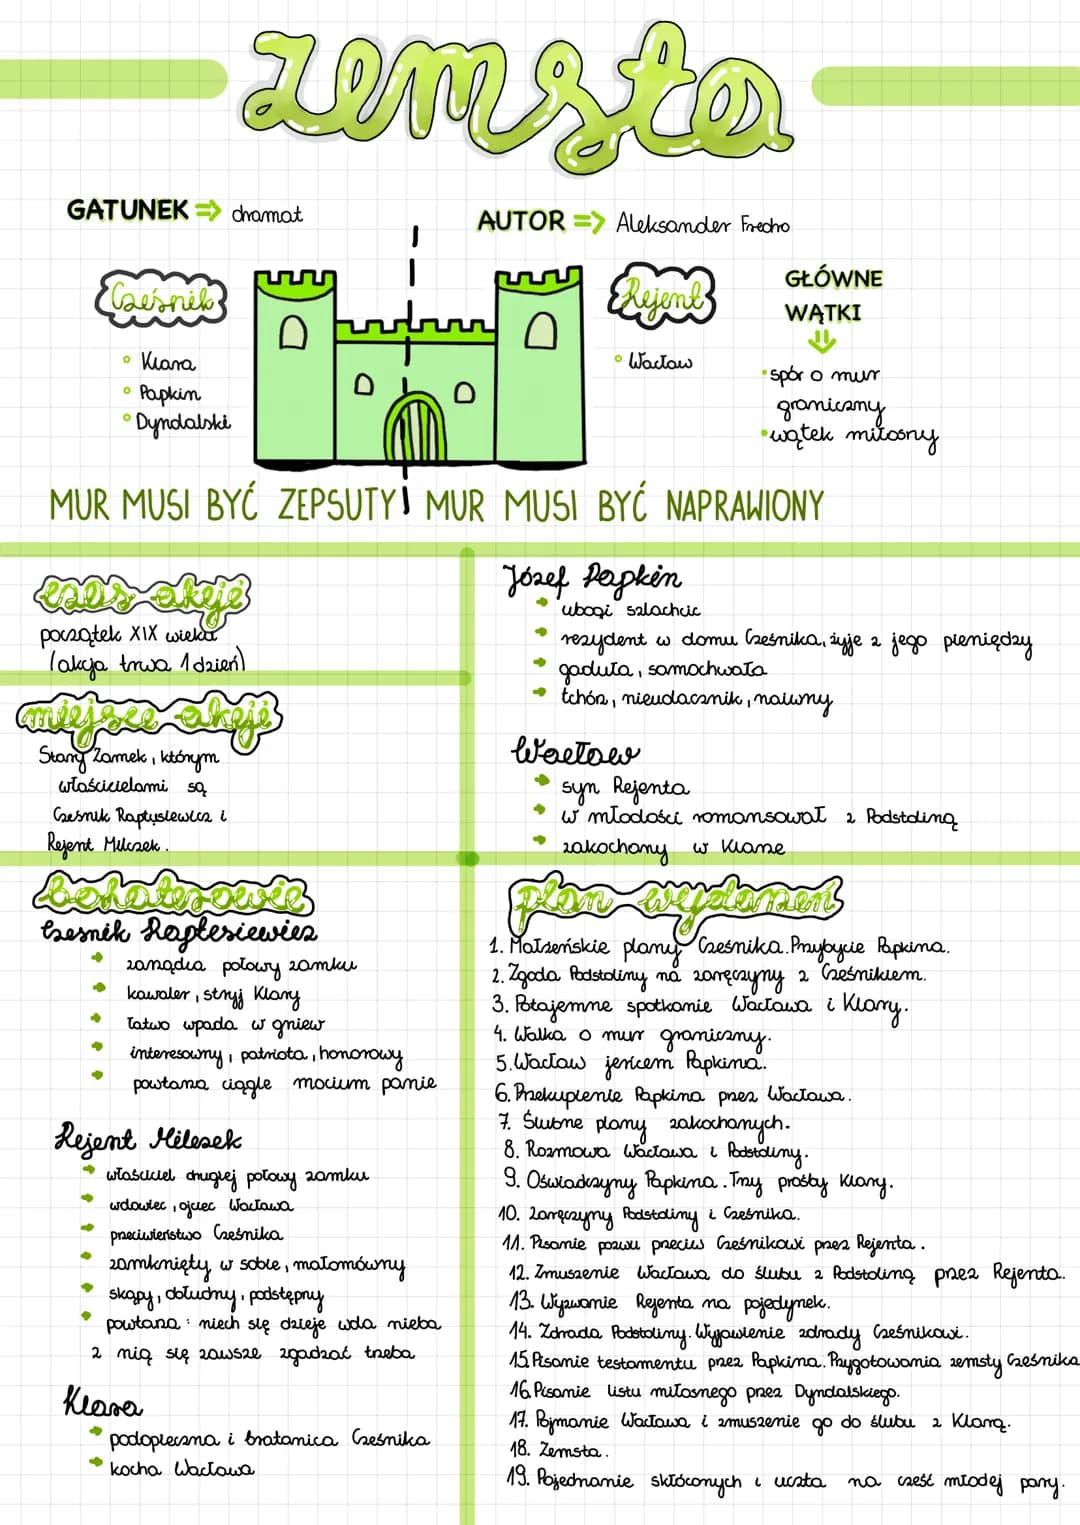 Zemsta
GATUNEK => dramat
AUTOR => Aleksander Fredro
Cześnik
• Klara
• Papkin
• Dyndalski
Rejent
• Wacław
GŁÓWNE
WĄTKI
• spór o mur
graniczny
• wątek miłosny
MUR MUSI BYĆ ZEPSUTY MUR MUSI BYĆ NAPRAWIONY
czas akcji
początek XIX wieku
(akcja trwa 1 dzień)
miejsce akcji
Stary Zamek, którym
właścicielami są
Cześnik Raptusiewicz i
Rejent Milczek.
bohaterowie
Cześnik Raptesiewicz
zarządza połowy zamku
kawaler, stryj Klary
łatwo wpada w gniew
interesowny, patriota, honorowy
powtarza ciągle mocium panie
Rejent Milczek
właściciel drugiej połowy zamku
wdowiec, ojciec Wacława
przeciwieństwo Cześnika
zamknięty w sobie, małomówny
skąpy, obłudny, podstępny
powtarza: niech się dzieje wola nieba
z nią się zawsze zgadzać trzeba
Klara
podopieczna i bratanica Cześnika
kocha Wacława
Józef Papkin
ubogi szlachcic
rezydent w domu Cześnika, żyje z jego pieniędzy
gaduła, samochwała
tchórz, nieudacznik, naiwny
Wacław
syn Rejenta
w młodości romansował z Podstoliną
zakochany w Klarze
plan wydarzeń
1. Małżeńskie plany Cześnika. Przybycie Papkina.
2. Zgoda Podstoliny na zaręczyny z Cześnikiem.
3. Potajemne spotkanie Wacława i Klary.
4. Walka o mur graniczny.
5. Wacław jeńcem Papkina.
6. Przekupienie Papkina przez Wacława.
7. Ślubne plany zakochanych.
8. Rozmowa Wacława i Podstoliny.
9. Oświadczyny Papkina. Trzy prośby Klary.
10. Zaręczyny Podstoliny i Cześnika.
11. Pisanie pozwu przeciw Cześnikowi przez Rejenta.
12. Zmuszenie Wacława do ślubu z Podstoliną przez Rejenta.
13. Wyzwanie Rejenta na pojedynek.
14. Zdrada Podstoliny. Wyjawienie zdrady Cześnikowi.
15. Pisanie testamentu przez Papkina. Przygotowania zemsty Cześnika
16. Pisanie listu miłosnego przez Dyndalskiego.
17. Pojmanie Wacława i zmuszenie go do ślubu z Klarą.
18. Zemsta.
19. Pojednanie skłóconych i uczta na cześć młodej pary.